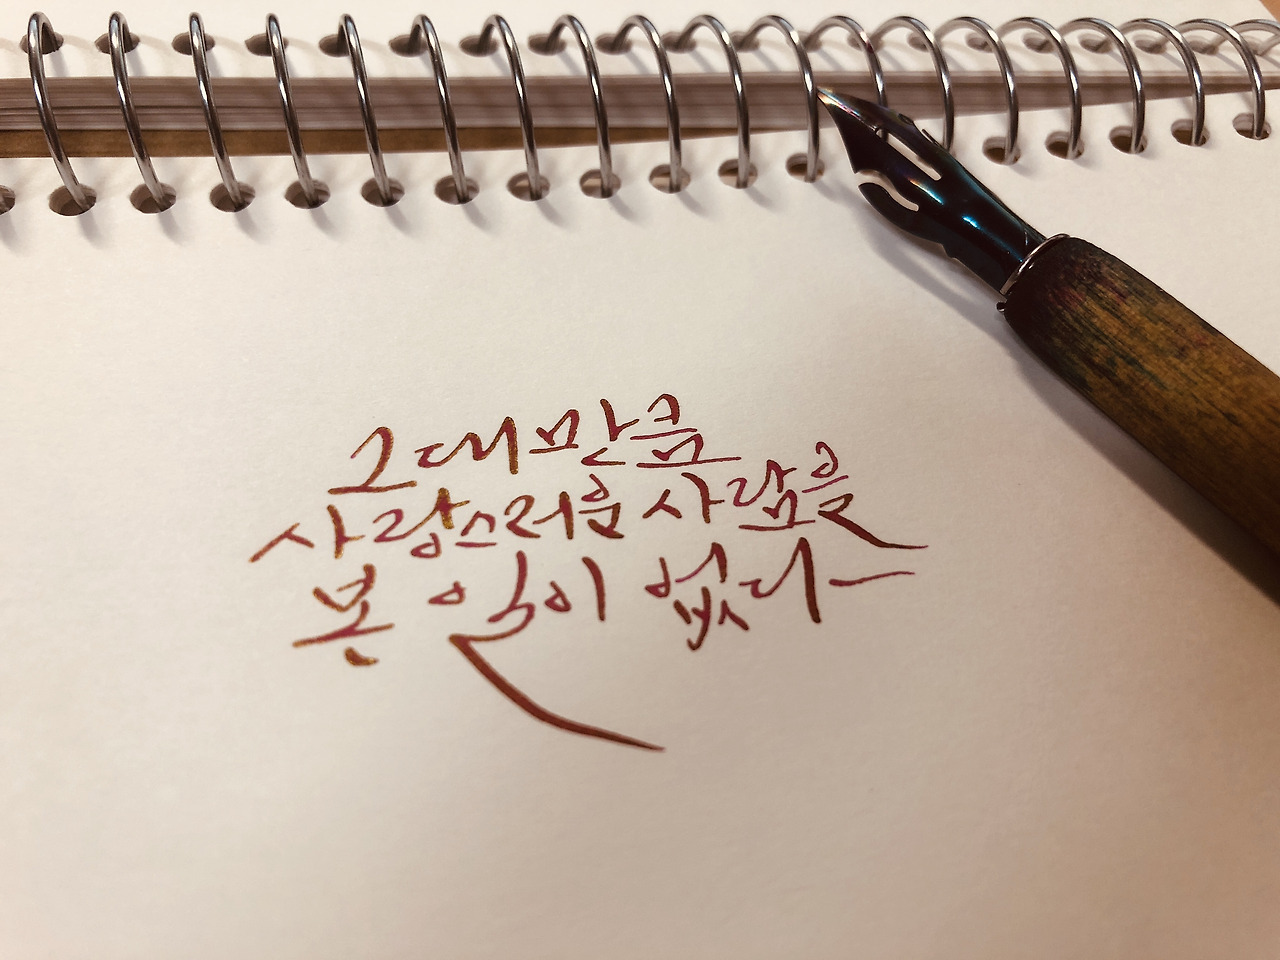 그대만큼
사랑스러운 사람을
본 일이 없다